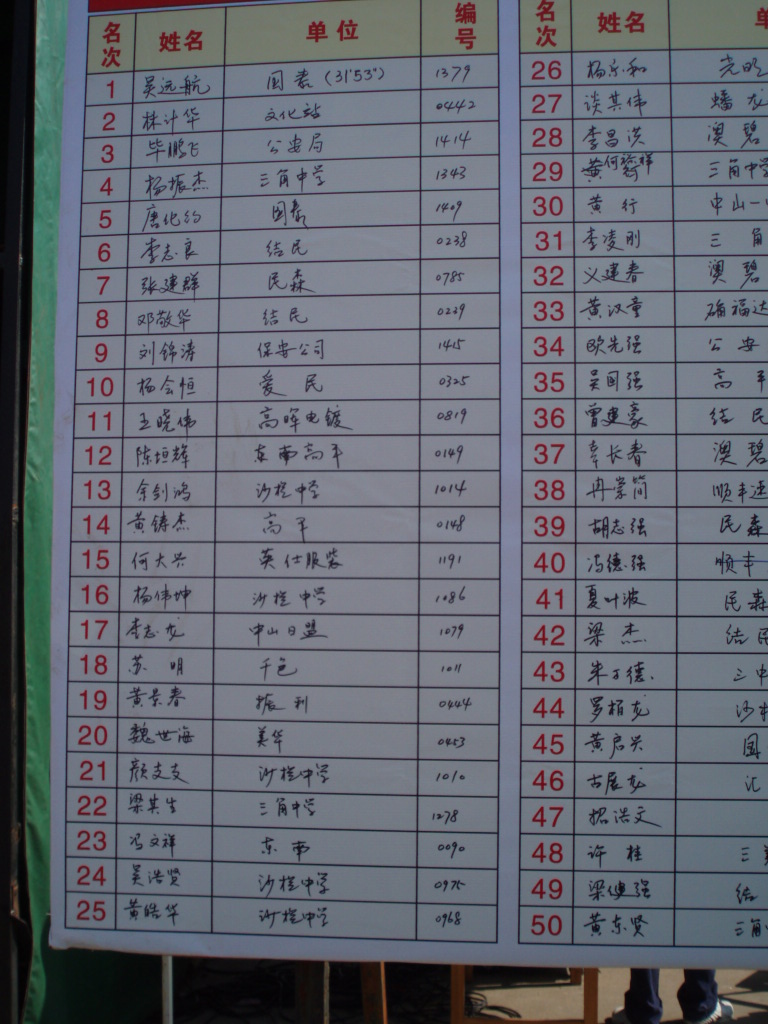 名次 姓名 单位 编号
1 吴远航 国泰(31'53") 1379
2 林计华 文化站 0442
3 毕鹏飞 公安局 1414
4 杨振杰 三角中学 1343
5 唐化约 国泰 1409
6 李志良 结民 0238
7 张建群 民森 0785
8 邓敬华 结民 0239
9 刘锦涛 保安公司 1415
10 杨会恒 爱民 0325
11 王晓伟 高晖电镀 0819
12 陈垣辉 东南高平 0149
13 余剑鸿 沙栏中学 1014
14 黄铸杰 高平 0148
15 何大兴 英仕服装 1191
16 杨伟坤 沙栏中学 1086
17 李志龙 中山日盟 1079
18 苏明 千色 1011
19 黄景春 振利 0444
20 魏世海 美华 0453
21 颜支支 沙栏中学 1010
22 梁其生 三角中学 1278
23 冯文祥 东南 0090
24 吴浩贤 沙栏中学 0975
25 黄皓华 沙栏中学 0968
名次 姓名
26 杨宗和 光明
27 谈其伟 蟠龙
28 李昌洪 澳碧
29 何 祥 三角中学
30 黄行 中山一
31 李凌刚 三角
32 义建春 澳碧
33 黄汉童 福达
34 欧先强 公安
35 吴国强 高平
36 曾建豪 结民
37 韦长春 澳碧
38 冉崇简 顺丰
39 胡志强 民森
40 冯德强 顺丰
41 夏叶波 民森
42 梁杰 结民
43 朱万德 三中
44 罗柏龙 沙
45 黄启兴 国
46 古展龙 汇
47 招浩文
48 许桂 三
49 梁健强 结
50 黄东贤 三角